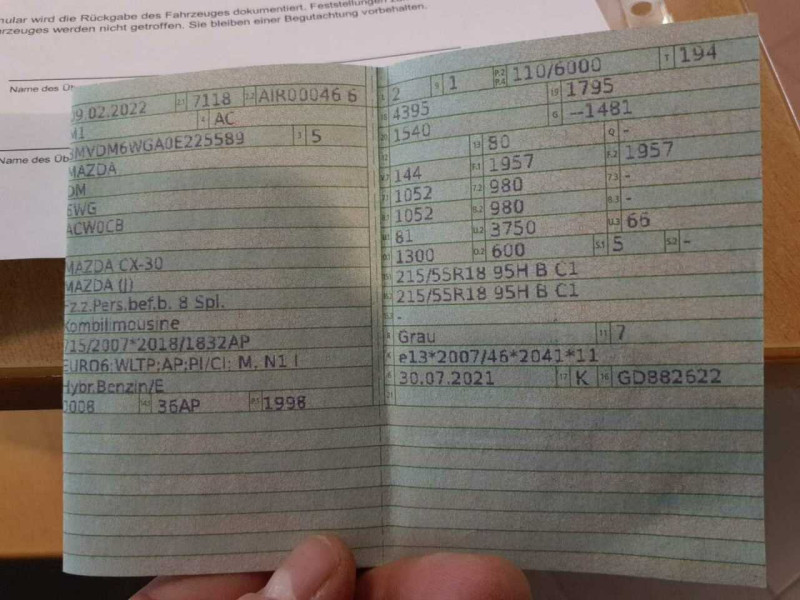 mular wird die Rückgabe des Fahrzeuges dokumentiert. Feststellungen
rzeuges werden nicht getroffen. Sie bleiben einer Begutachtung vorbehalten.
Name des Üb
Name des Üb
09.02.2022 2.1 7118 2.2 AIR00046 6
M1 4 AC
JMVDM6WGA0E225589 3 5
MAZDA
DM
6WG
ACW0CB
MAZDA CX-30
MAZDA (J)
Fz.z.Pers.bef.b. 8 Spl.
Kombilimousine
715/2007*2018/1832AP
EURO6;WLTP;AP;PI/CI; M, N1 I
Hybr.Benzin/E
0008 14.1 36AP P.1 1998
2 9 1 P.2 P.4 110/6000 T 194
4395 19 1795
1540 G --1481
13 80 Q -
144 F.1 1957 F.2 1957
1052 7.2 980 7.3 -
1052 8.2 980 8.3 -
81 U.2 3750 U.3 66
1300 O.2 600 S.1 5 S.2 -
215/55R18 95H B C1
215/55R18 95H B C1
-
Grau 11 7
e13*2007/46*2041*11
30.07.2021 17 K 16 GD882622
21